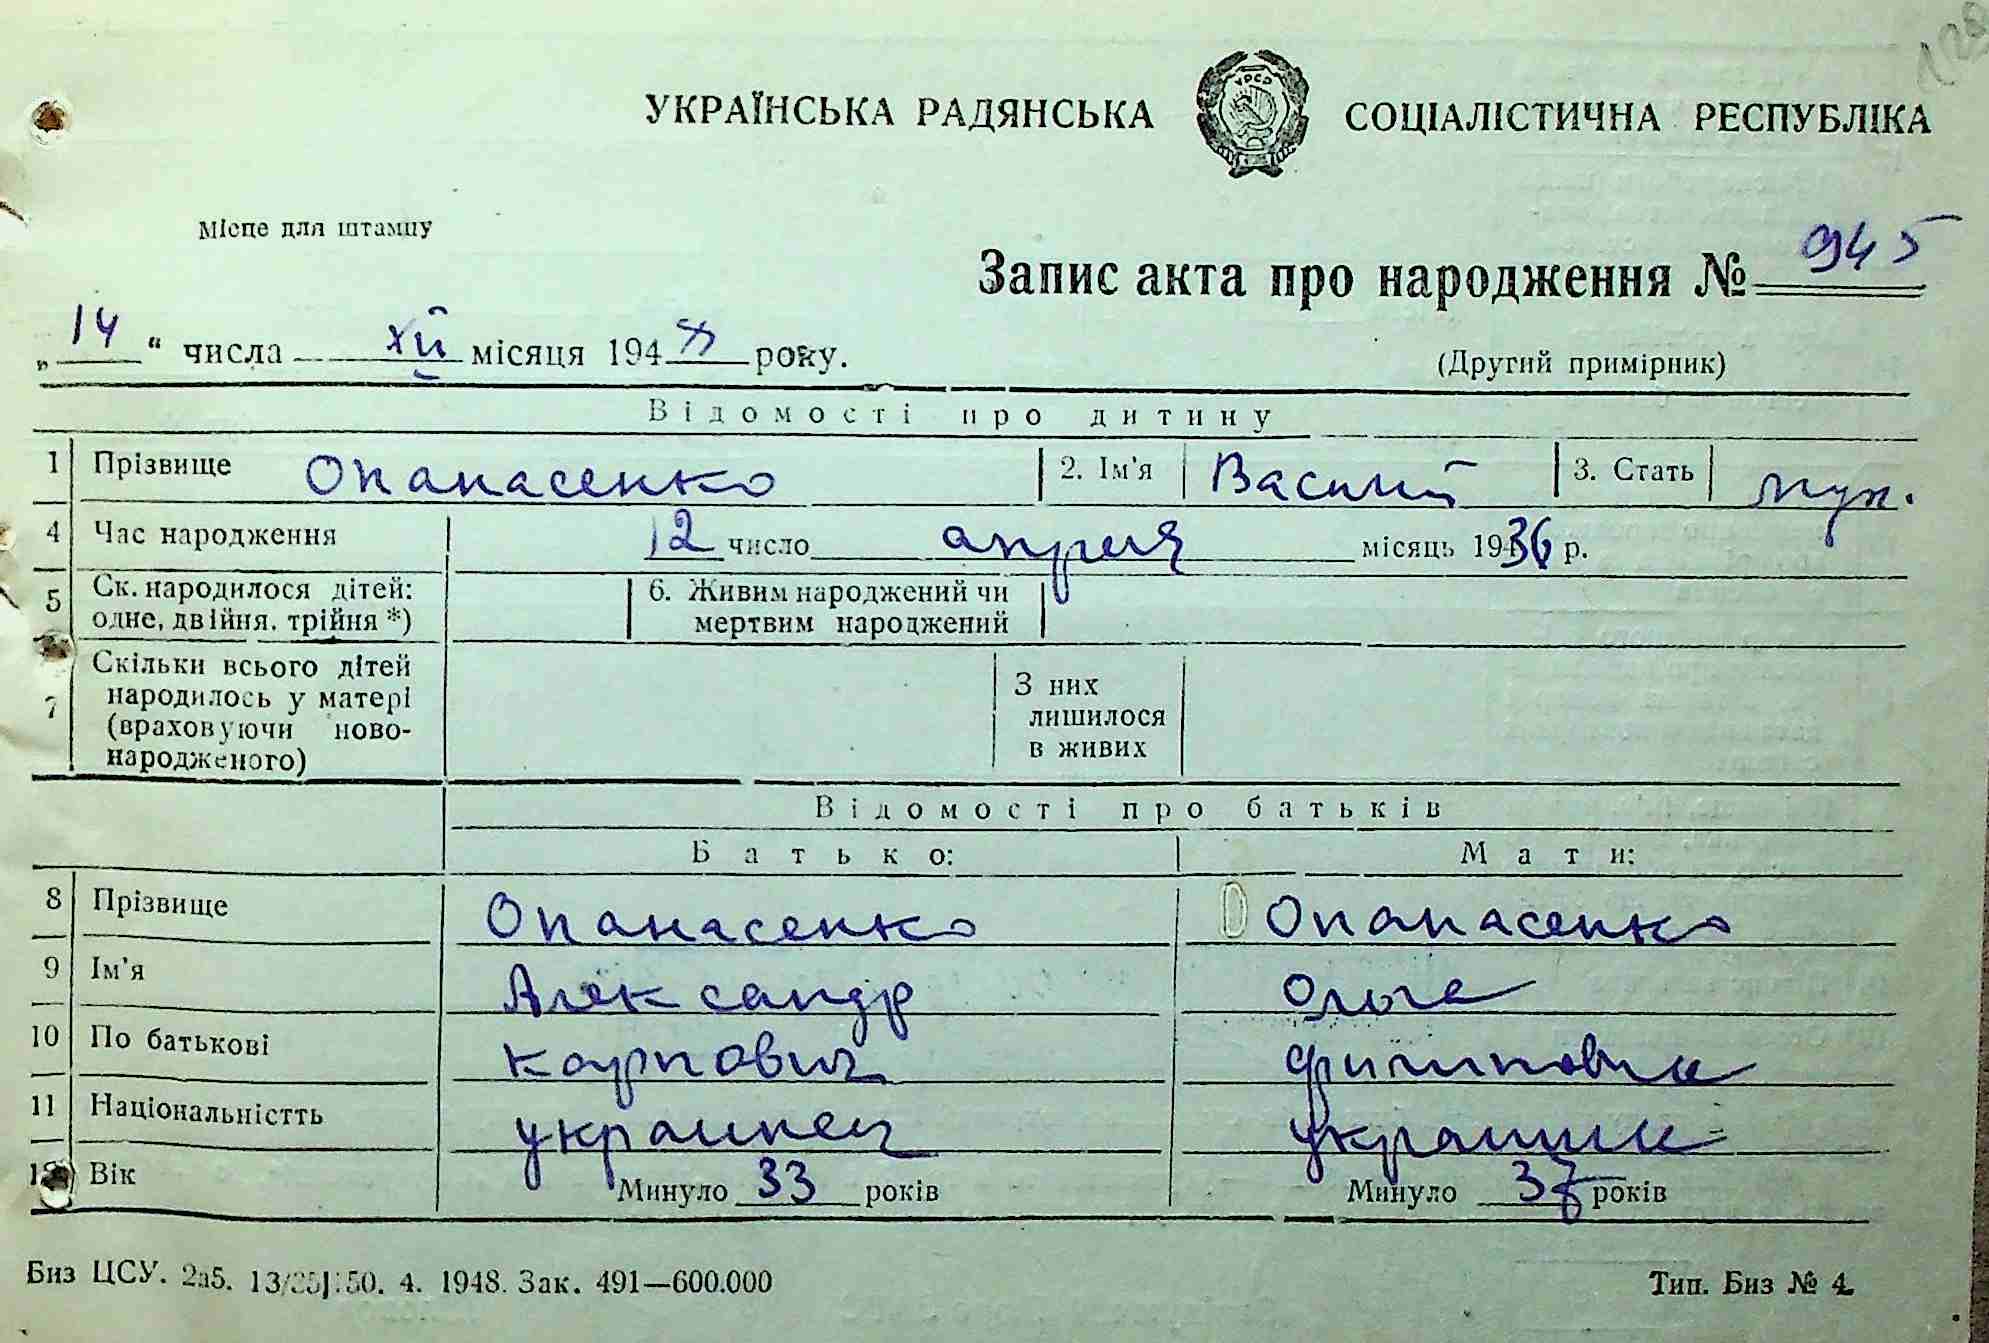 128
УКРАЇНСЬКА РАДЯНСЬКА СОЦІАЛІСТИЧНА РЕСПУБЛІКА
УРСР
Місце для штампу
Запис акта про народження № 945
„14“ числа XII місяця 1948 року.
(Другий примірник)
Відомості про дитину
1 Прізвище Опанасенко 2. Ім'я Василий 3. Стать муж.
4 Час народження 12 число апреля місяць 1936 р.
5 Ск. народилося дітей: одне, двійня, трійня *) 6. Живим народжений чи мертвим народжений
7 Скільки всього дітей народилось у матері (враховуючи новонародженого) З них лишилося в живих
Відомості про батьків
Батько: Мати:
8 Прізвище Опанасенко Опанасенко
9 Ім'я Александр Ольга
10 По батькові Карпович Филиповна
11 Національністть украинец украинка
12 Вік Минуло 33 років Минуло 37 років
Биз ЦСУ. 2а5. 4. 1948. Зак. 491—600.000 Тип. Биз № 4.